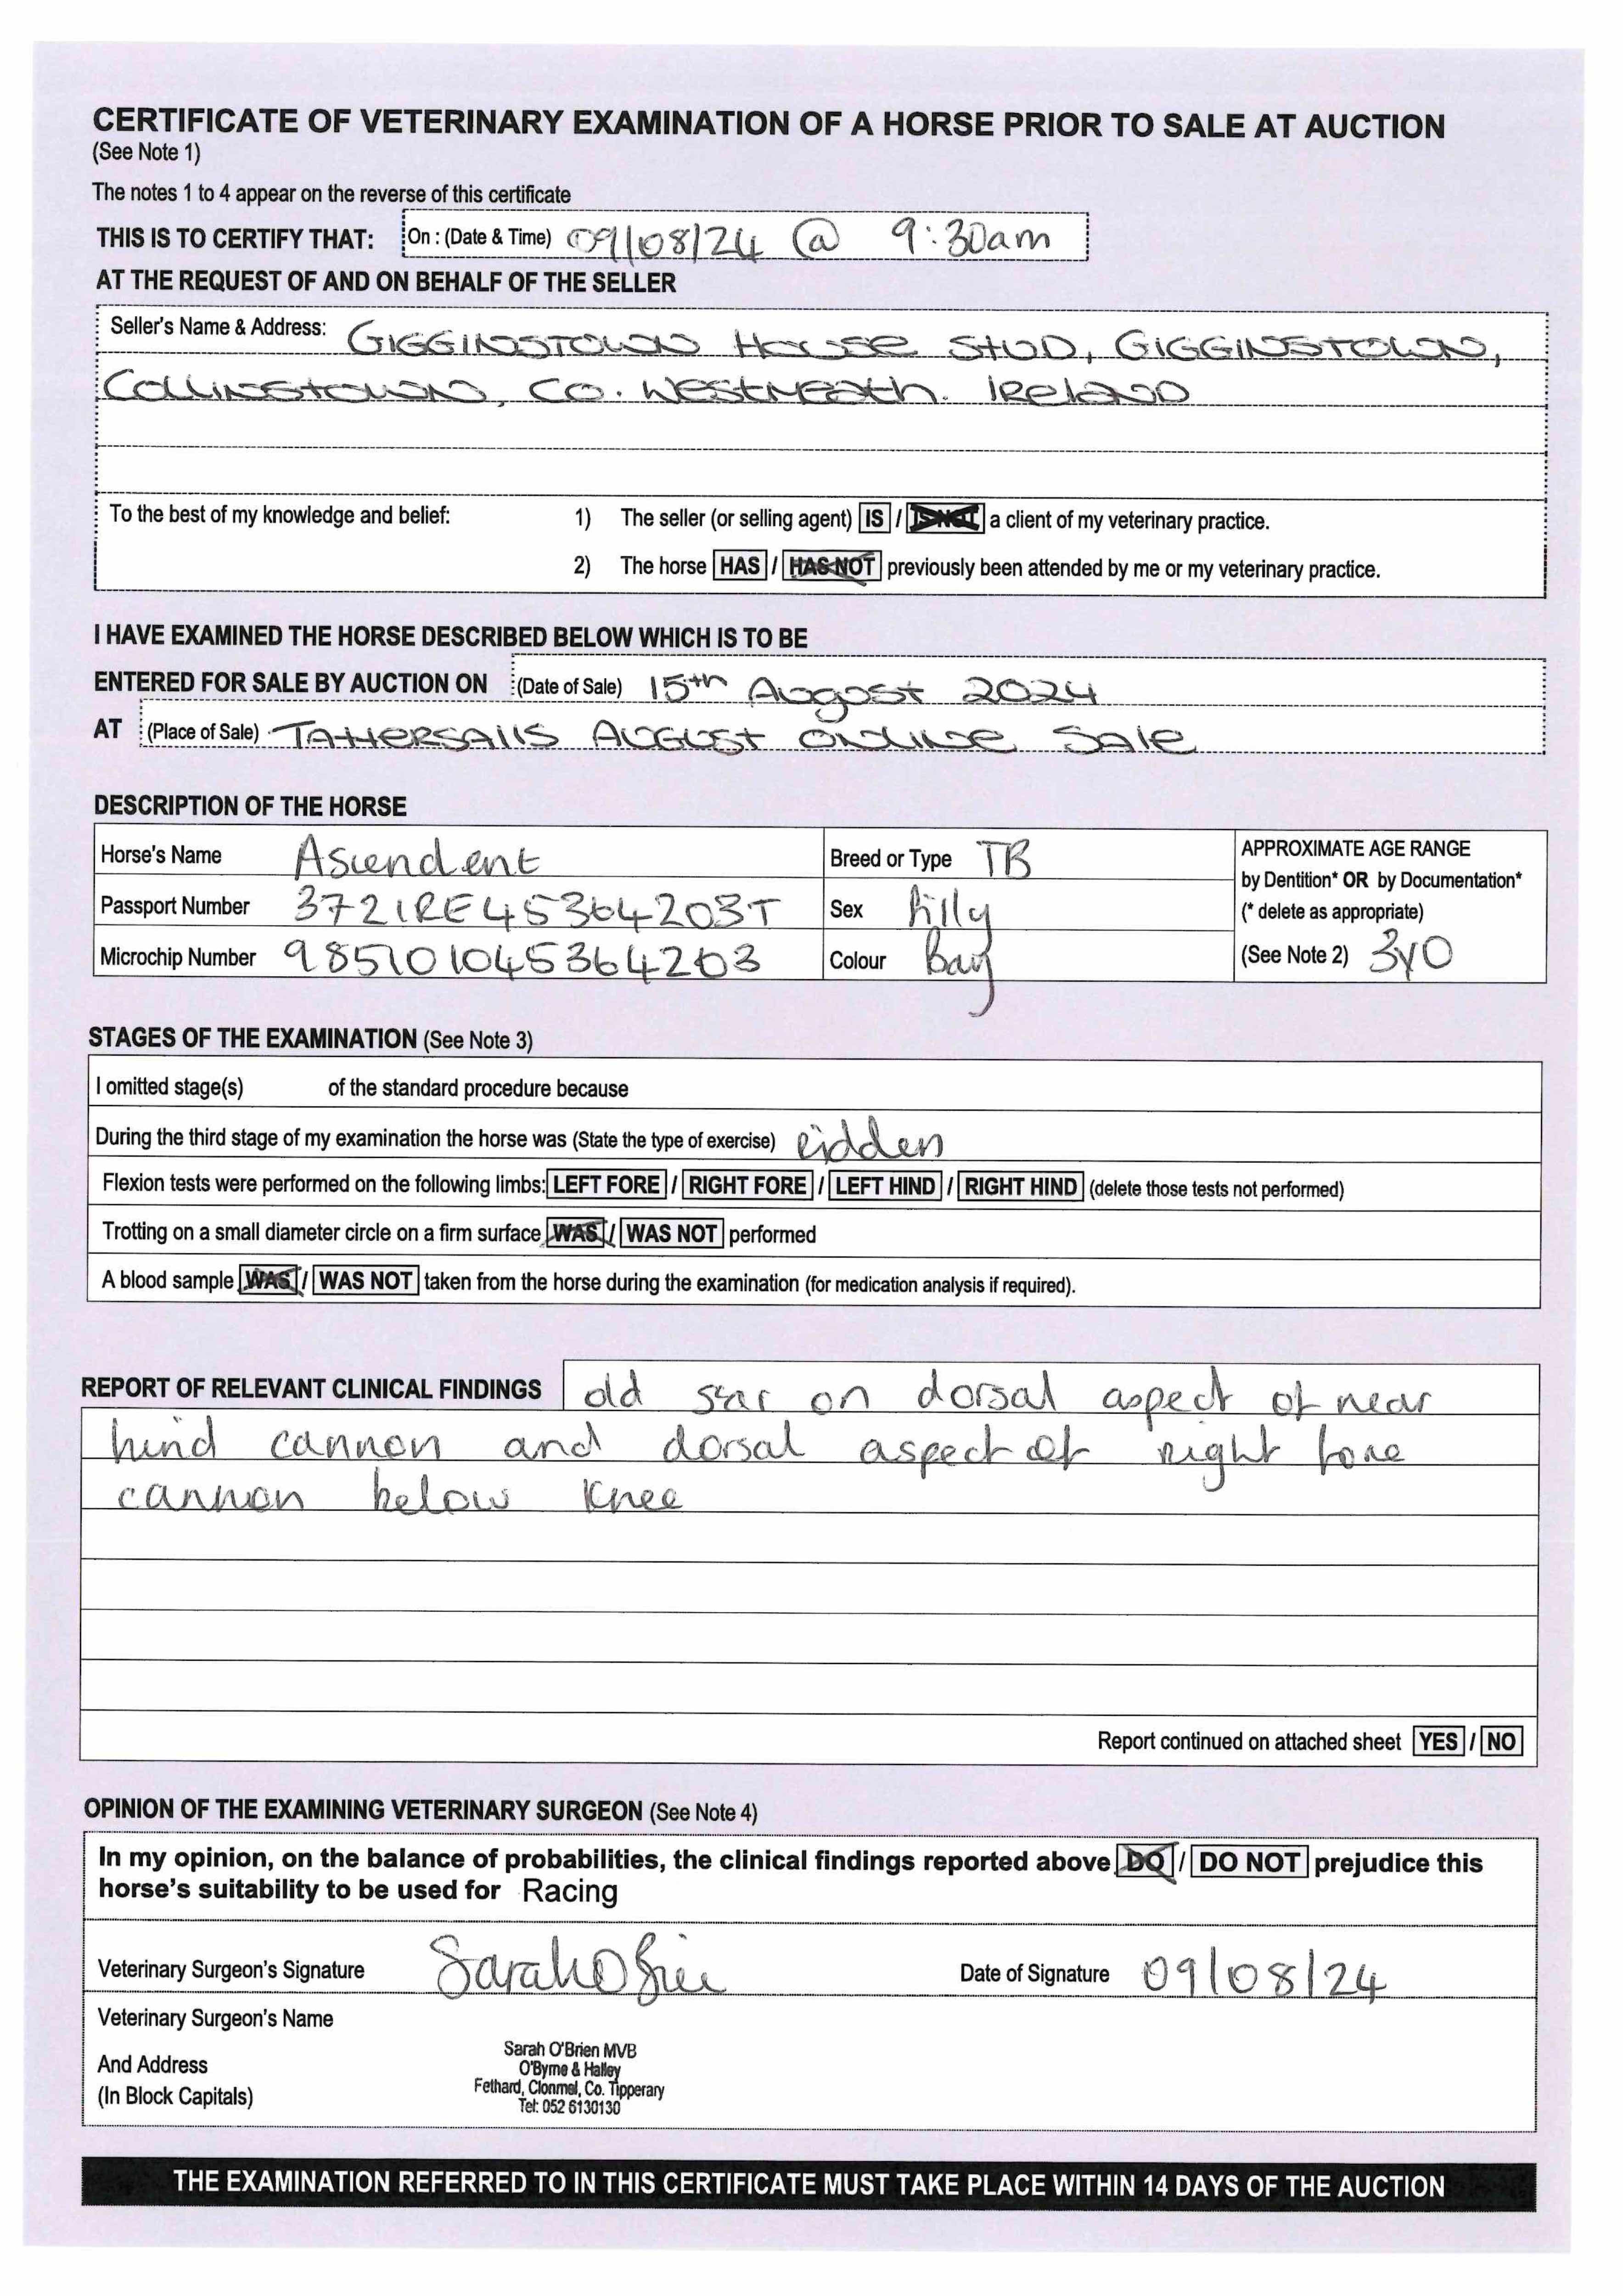 CERTIFICATE OF VETERINARY EXAMINATION OF A HORSE PRIOR TO SALE AT AUCTION
(See Note 1)
The notes 1 to 4 appear on the reverse of this certificate
THIS IS TO CERTIFY THAT: On : (Date & Time) 09/08/24 @ 9:30am
AT THE REQUEST OF AND ON BEHALF OF THE SELLER
Seller's Name & Address: GIGGINSTOWN HOUSE STUD, GIGGINSTOWN,
COLLINSTOWN, CO. WESTMEATH. IRELAND
To the best of my knowledge and belief: 1) The seller (or selling agent) IS / IS NOT a client of my veterinary practice.
2) The horse HAS / HAS NOT previously been attended by me or my veterinary practice.
I HAVE EXAMINED THE HORSE DESCRIBED BELOW WHICH IS TO BE
ENTERED FOR SALE BY AUCTION ON (Date of Sale) 15th August 2024
AT (Place of Sale) TATTERSALLS AUGUST ONLINE SALE
DESCRIPTION OF THE HORSE
Horse's Name Ascendent Breed or Type TB APPROXIMATE AGE RANGE
by Dentition* OR by Documentation*
Passport Number 372IRE45364203T Sex Filly (* delete as appropriate)
Microchip Number 985101045364203 Colour Bay (See Note 2) 3YO
STAGES OF THE EXAMINATION (See Note 3)
I omitted stage(s) of the standard procedure because
During the third stage of my examination the horse was (State the type of exercise) ridden
Flexion tests were performed on the following limbs: LEFT FORE / RIGHT FORE / LEFT HIND / RIGHT HIND (delete those tests not performed)
Trotting on a small diameter circle on a firm surface WAS / WAS NOT performed
A blood sample WAS / WAS NOT taken from the horse during the examination (for medication analysis if required).
REPORT OF RELEVANT CLINICAL FINDINGS old scar on dorsal aspect of near
hind cannon and dorsal aspect of right fore
cannon below Knee
Report continued on attached sheet YES / NO
OPINION OF THE EXAMINING VETERINARY SURGEON (See Note 4)
In my opinion, on the balance of probabilities, the clinical findings reported above DO / DO NOT prejudice this
horse's suitability to be used for Racing
Veterinary Surgeon's Signature Sarah O'Brien Date of Signature 09/08/24
Veterinary Surgeon's Name
And Address
(In Block Capitals)
Sarah O'Brien MVB
O'Byrne & Halley
Fethard, Clonmel, Co. Tipperary
Tel: 052 6130130
THE EXAMINATION REFERRED TO IN THIS CERTIFICATE MUST TAKE PLACE WITHIN 14 DAYS OF THE AUCTION